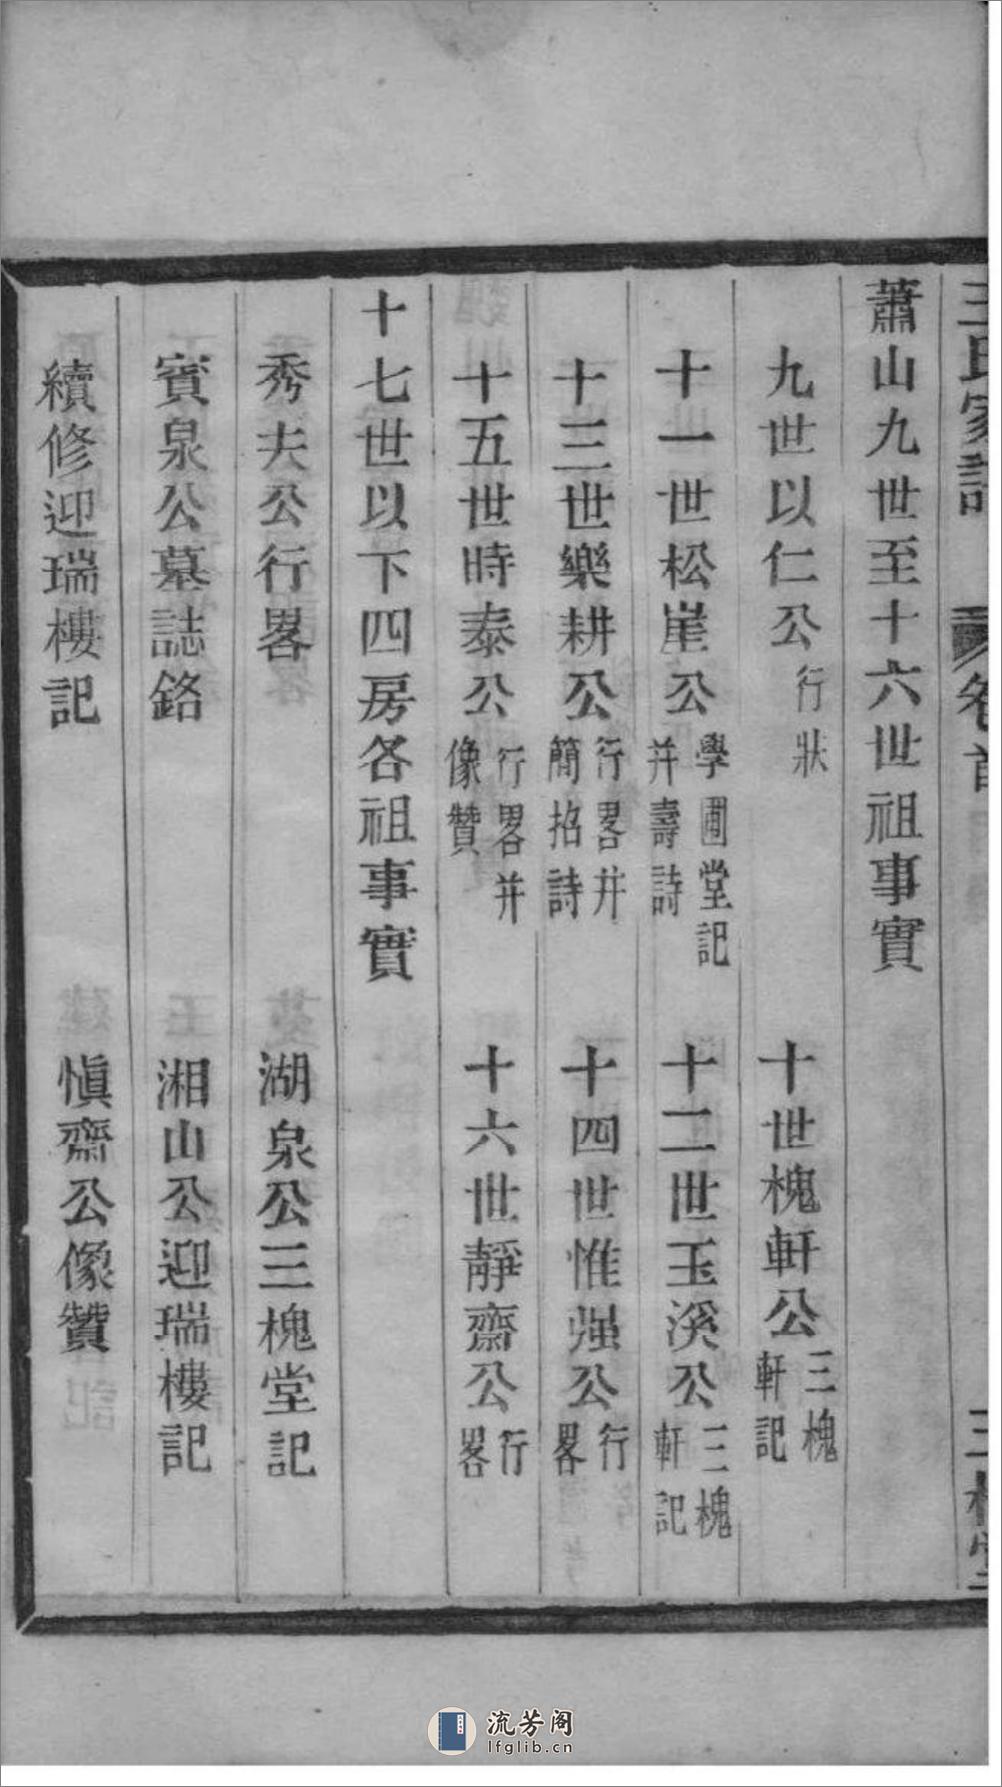 蕭山九世至十六世祖事實
九世以仁公行狀
十世槐軒公三槐軒記
十一世松崖公學圃堂記并壽詩
十二世玉溪公三槐軒記
十三世樂耕公行畧并簡招詩
十四世惟强公行畧
十五世時泰公行畧并像贊
十六世靜齋公行畧
十七世以下四房各祖事實
秀夫公行畧
湖泉公三槐堂記
賓泉公墓誌銘
湘山公迎瑞樓記
續修迎瑞樓記
愼齋公像贊
流芳阁
lfglib.cn